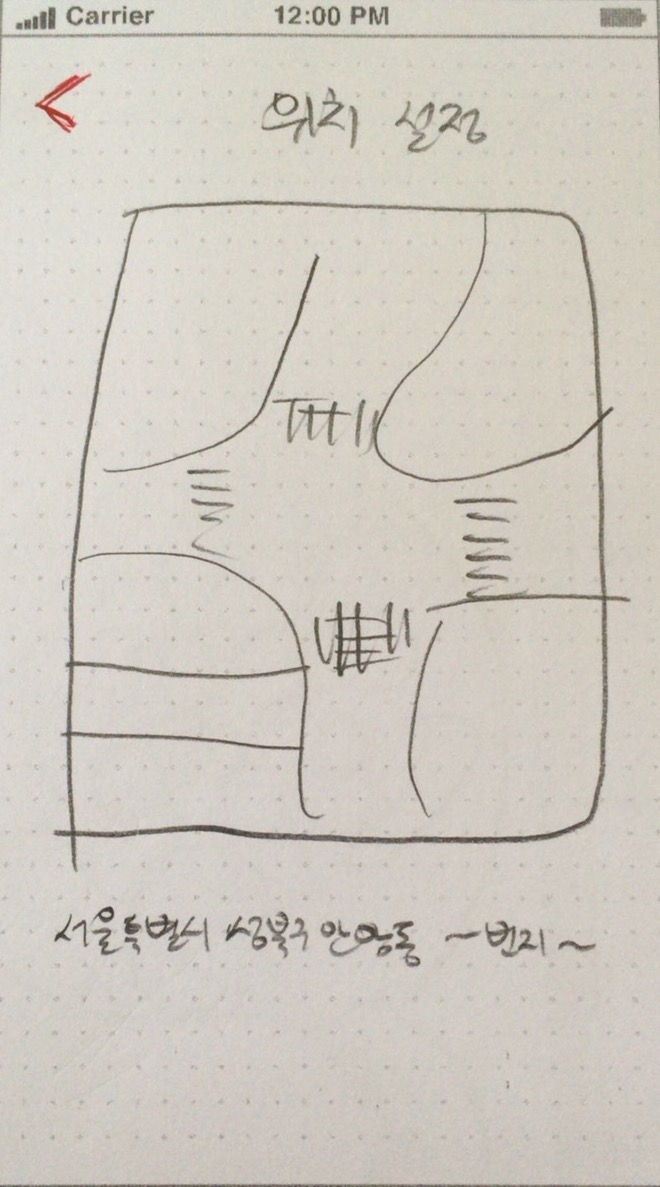 Carrier 12:00 PM
위치 설정
서울특별시 성북구 안암동 ~번지~